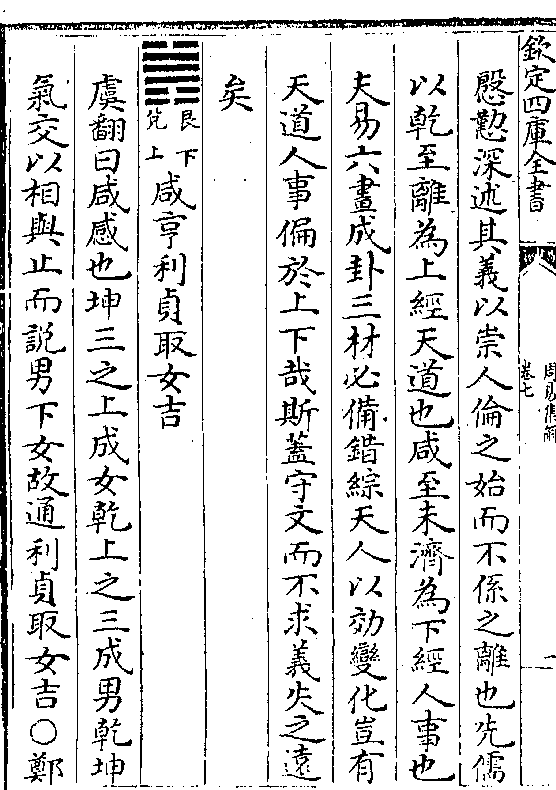 欽定四庫全書
周易集解
卷七
一
慇懃深述其義以崇人倫之始而不係之離也先儒
以乾至離為上經天道也咸至未濟為下經人事也
夫易六畫成卦三材必備錯綜天人以効變化豈有
天道人事偏於上下哉斯葢守文而不求義失之遠
矣
艮下
兊上
咸亨利貞取女吉
虞翻曰咸感也坤三之上成女乾上之三成男乾坤
氣交以相與止而説男下女故通利貞取女吉○鄭